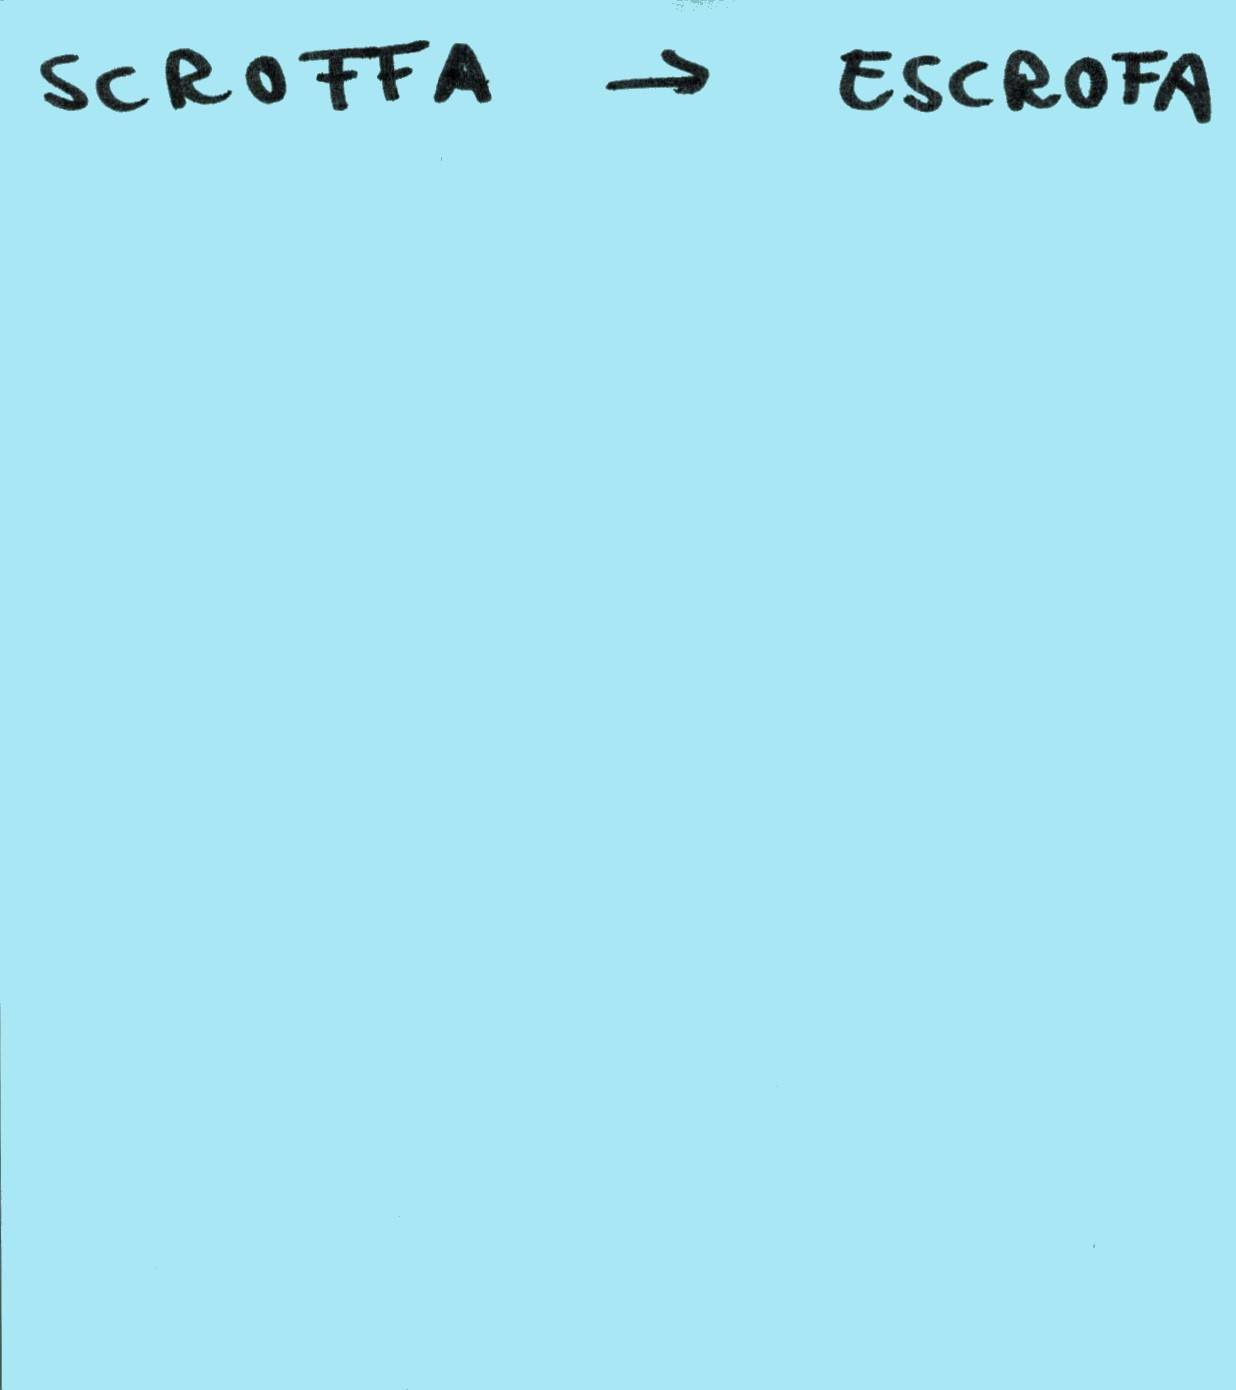 SCROFFA → ESCROFA